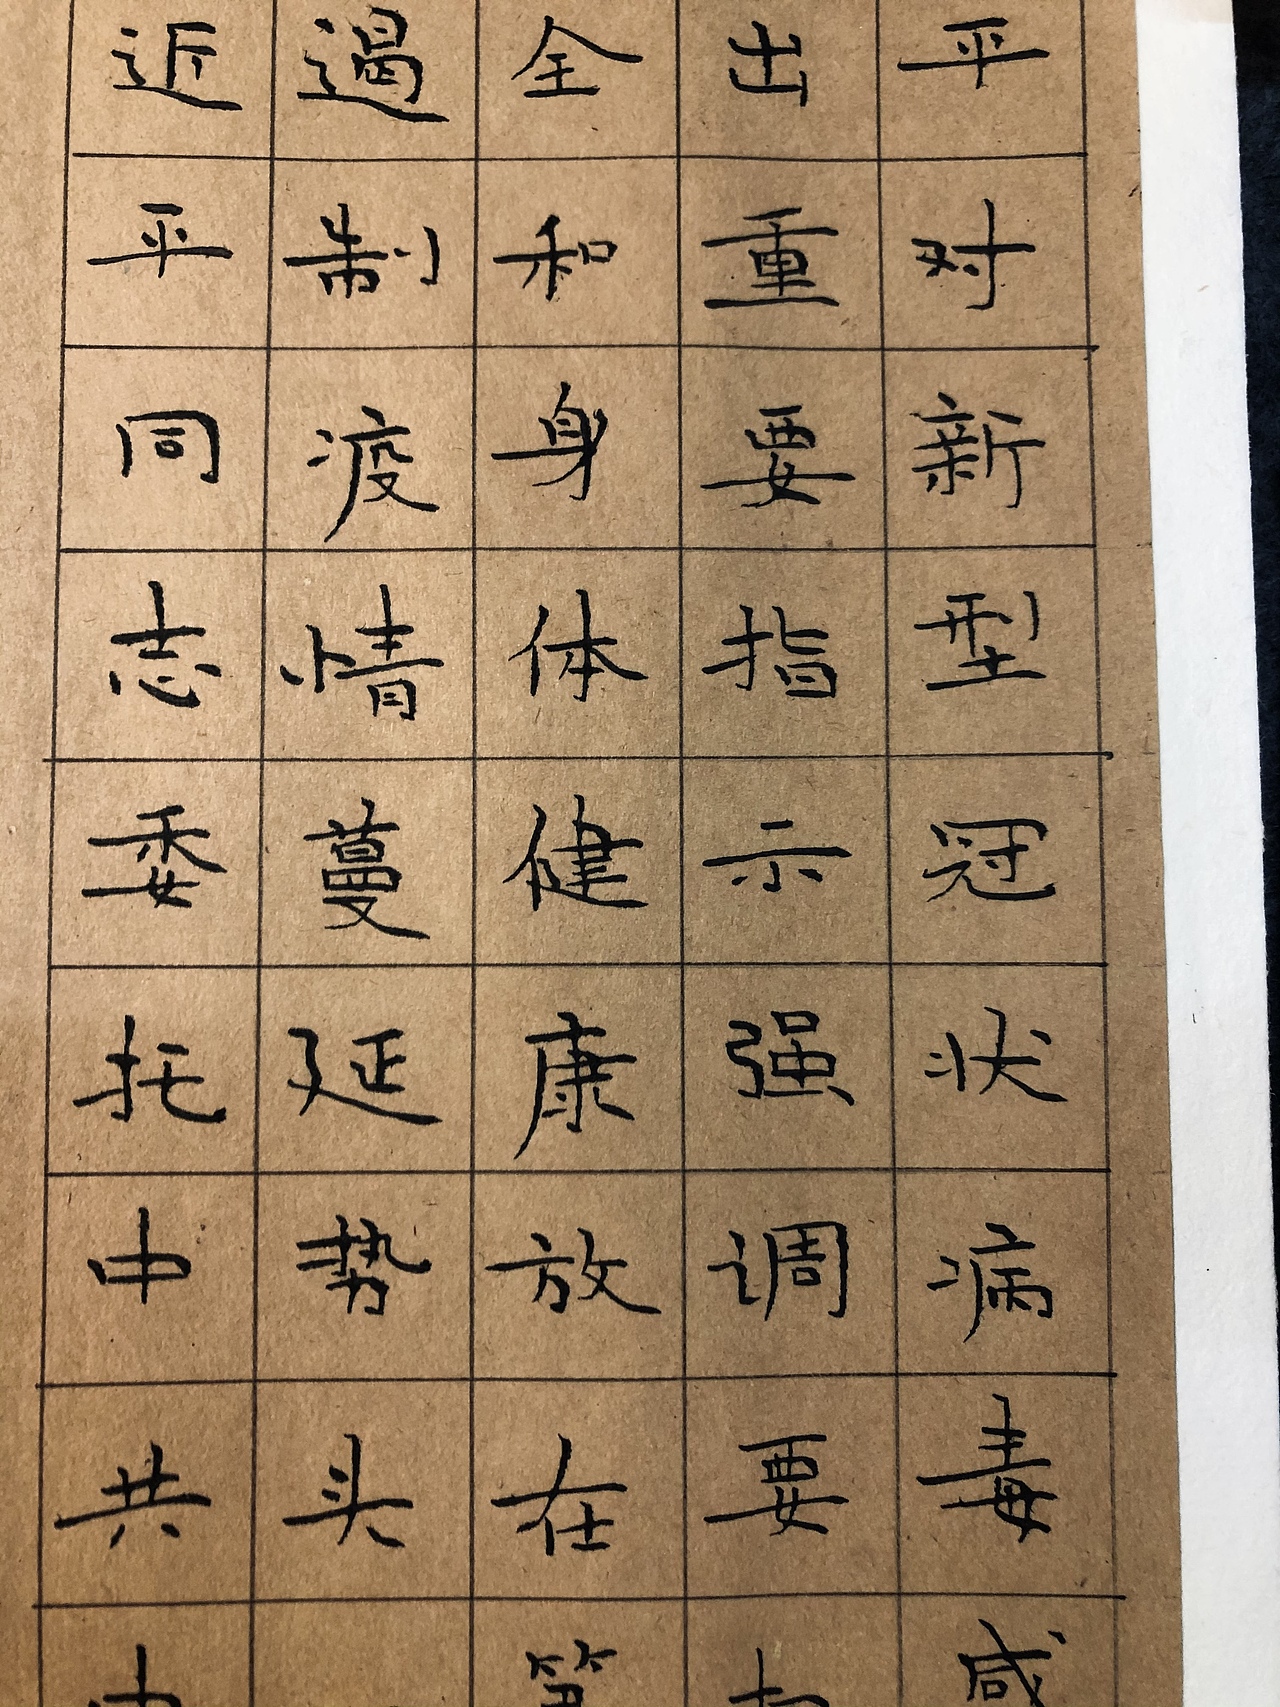 平对新型冠状病毒感
出重要指示强调要
全和身体健康放在第
遏制疫情蔓延势头
近平同志委托中共中